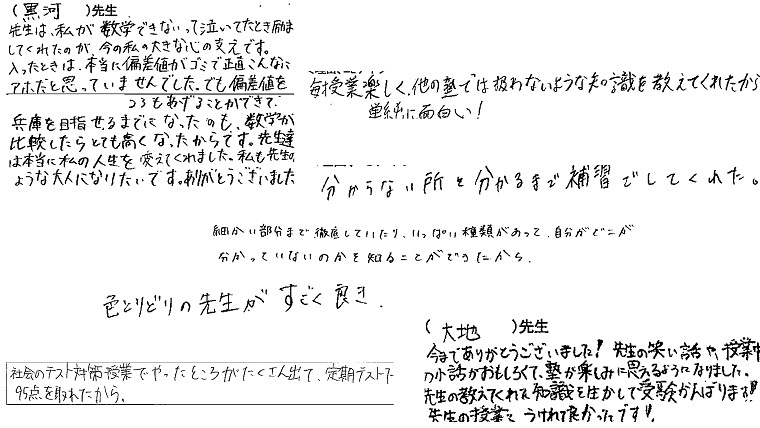 (黒河)先生
先生は、私が数学できないって泣いてたとき励ま
してくれたのが、今の私の大きな心の支えです。
入ったときは、本当に偏差値がゴミで正直こんなに
アホだと思っていませんでした。でも偏差値を
23もあげることができて、
兵庫を目指せるまでになったのも、数学が
比較したらとても高くなったからです。先生達
は本当に私の人生を変えてくれました。私も先生の
ような大人になりたいです。ありがとうございました
毎授業楽しく、他の塾では扱わないような知識を教えてくれたから
単純に面白い!
分からない所を分かるまで補習でしてくれた。
細かい部分まで徹底していたり、いっぱい種類があって、自分がどこが
分かっていないのかを知ることができたから。
色とりどりの先生がすごく良き.
社会のテスト対策授業でやったところがたくさん出て、定期テストで
95点を取れたから。
(大地)先生
今までありがとうございました!先生の笑い話や、授業中
の小話がおもしろくて、塾が楽しみに思えるようになりました。
先生の教えてくれた知識を生かして受験がんばります!!
先生の授業を うけれて良かったです!!